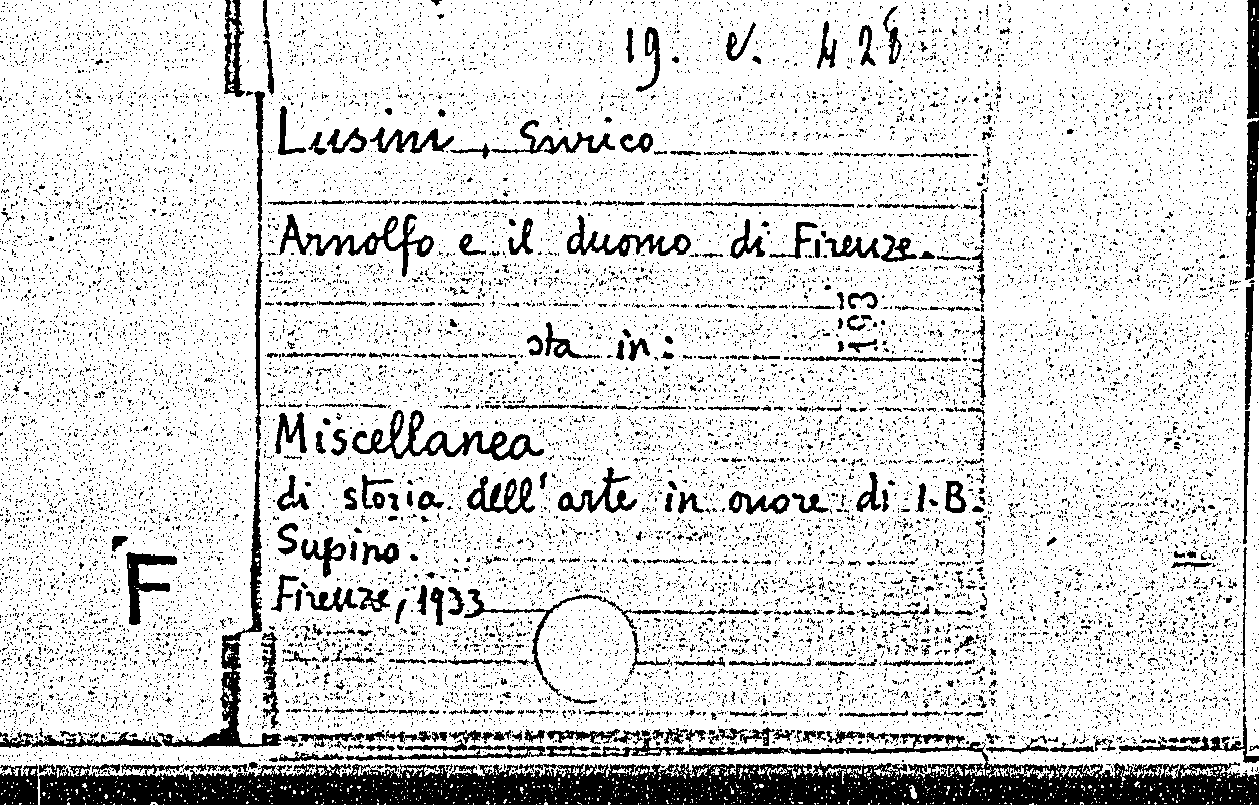 19. e. 428
Lusini, Enrico
Arnolfo e il duomo di Firenze.
193
sta in:
Miscellanea
di storia dell'arte in onore di I.B.
Supino.
Firenze, 1933
F